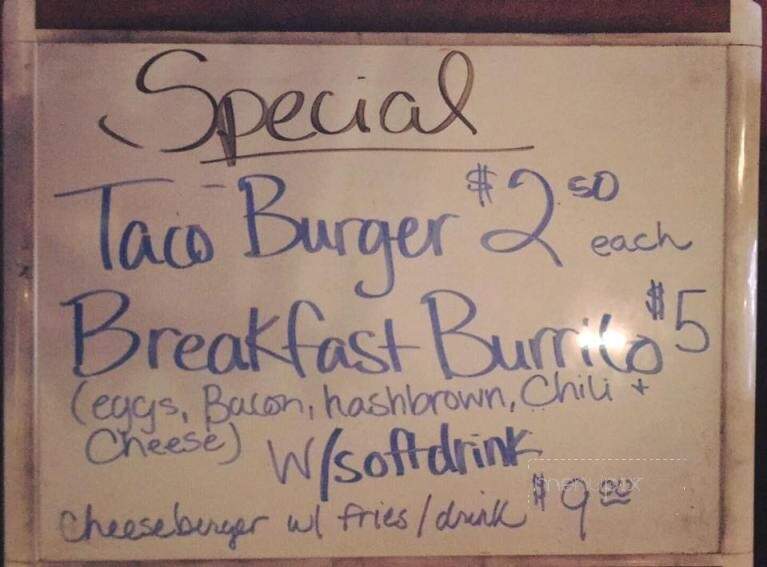 Special
Taco Burger $2.50 each
Breakfast Burrito $5
(eggs, Bacon, hashbrown, Chili +
Cheese) w/softdrink
menupix
cheeseburger w/ fries/drink $9.00